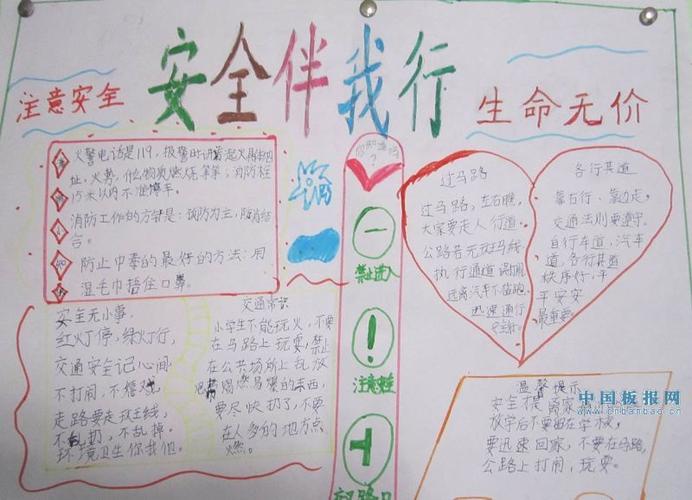 安全伴我行
注意安全
生命无价
火警电话是119，报警时讲着起火
址，火势，什么物质燃烧等等；消防栓
15米以内不准停车。
消防工作的方针是：预防为主，防消结
合。
防止中毒的最好的方法：用
湿毛巾捂住口鼻。
安全无小事
红灯停，绿灯行，
交通安全记心间
不打闹，不嬉戏
走路要走斑线
不乱扔，不乱掉
环境卫生你我他。
交通常识
小学生不能玩火，不要
在马路上玩耍，禁止
在公共场所上乱放
易燃易爆的东西，
要尽快扔了，不要
在人多的地方点
燃。
？
禁止进入
！
注意
过马路
过马路，左右瞧，
大家要走人行道。
公路若无斑马线
执行通道
远离汽车不
迅速通行
各行其道
靠右行、靠边走，
交通法则要遵守。
自行车道，汽车
道，各行其道
秩序好，平
平安安
最重要
温馨提示
放学后不要留在学校，
要迅速回家，不要在马路，
公路上打闹，玩耍。
中国板报网
www.cnbanbao.cn